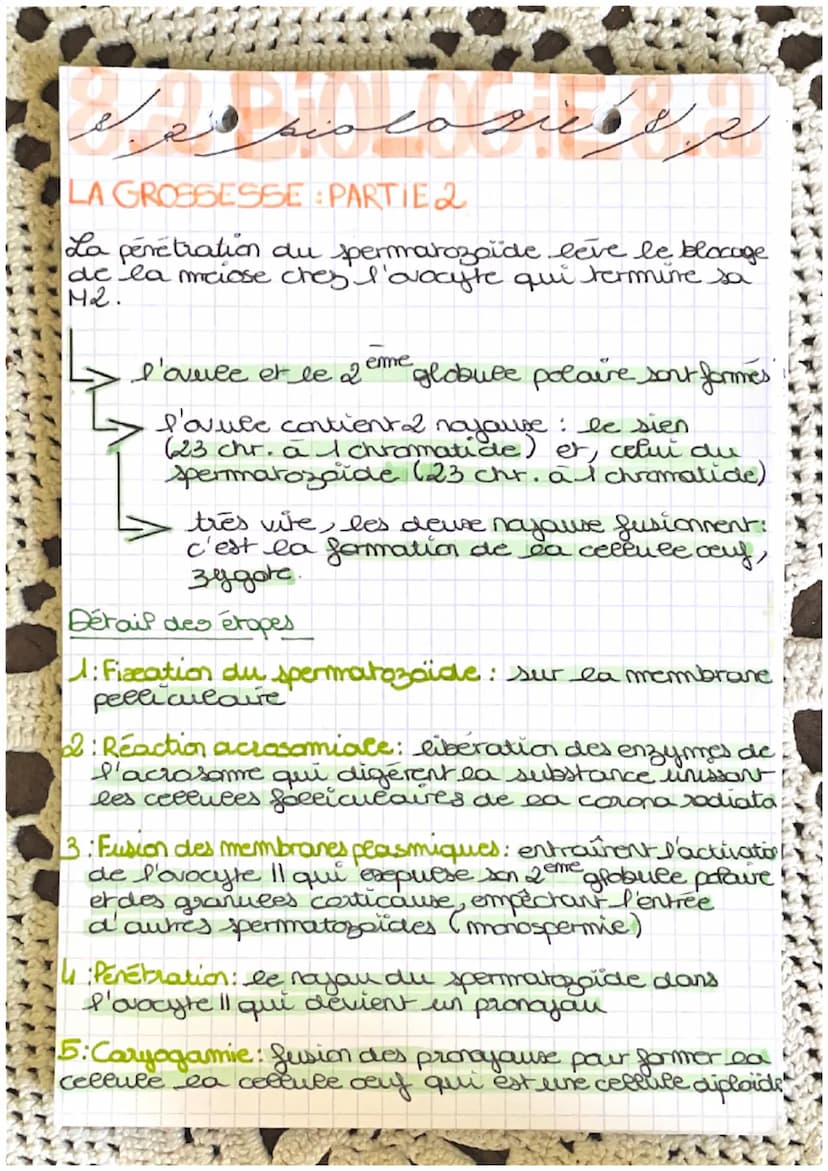 8.2 BIOLOGIE 8.2
8.2 biologie 8.2
LA GROSSESSE : PARTIE 2
La pénétration du spermatozoïde lève le blocage
de la méiose chez l'ovocyte qui termine sa
M2.
l'ovule et le 2ème globule polaire sont formés
l'ovule contient 2 noyaux : le sien
(23 chr. à 1 chromatide) et, celui du
spermatozoïde (23 chr. à 1 chromatide)
très vite, les deux noyaux fusionnent:
c'est la formation de la cellule œuf,
zygote.
Détail des étapes
1: Fixation du spermatozoïde : sur la membrane
pelliculaire
2 : Réaction acrosomiale : libération des enzymes de
l'acrosome qui digèrent la substance unissant
les cellules folliculaires de la corona radiata
3 : Fusion des membranes plasmiques : entraînent l'activatio
de l'ovocyte II qui expulse son 2ème globule polaire
et des granules corticaux, empêchant l'entrée
d'autres spermatozoïdes (monospermie)
4 : Pénétration : le noyau du spermatozoïde dans
l'ovocyte II qui devient un pronoyau
5 : Caryogamie : fusion des pronoyaux pour former la
cellule la cellule œuf qui est une cellule diploïde